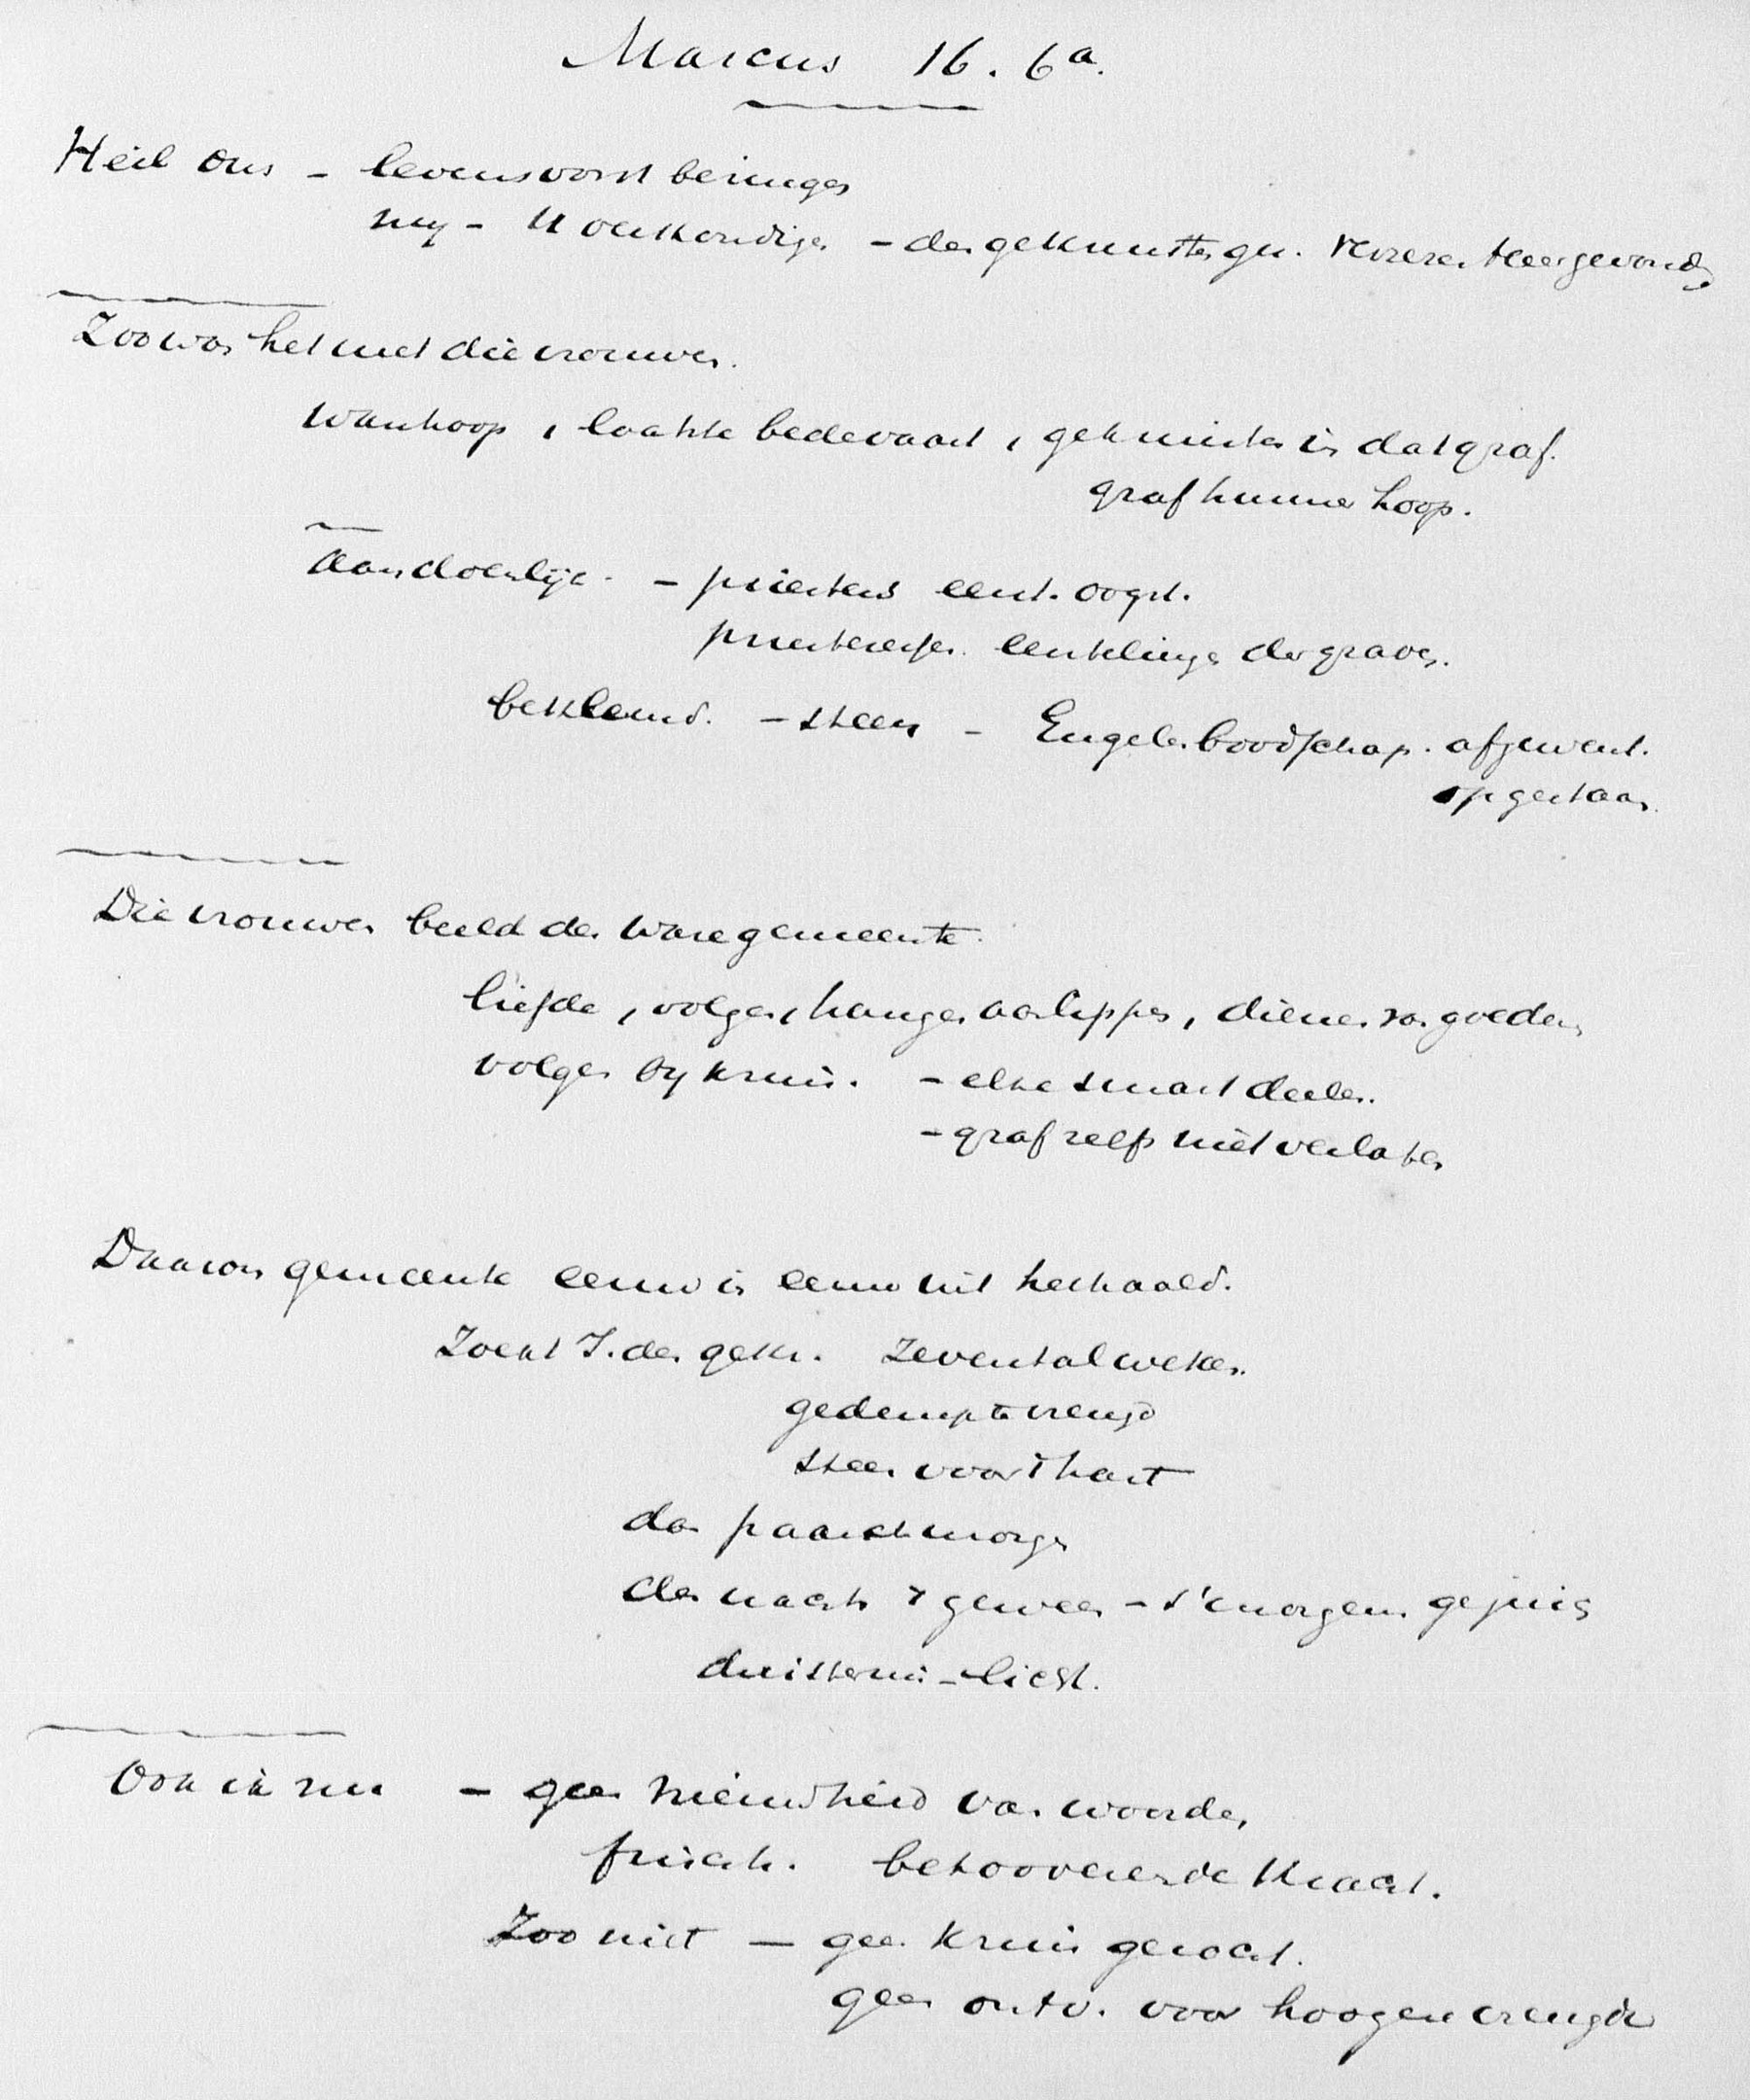 Marcus 16. 6a.
Heil ons - levensvorst bezingen
mij - U verkondigen - den gekruisten gez. verrezen weergevonden
Zoo was het met die vrouwen.
Wanhoop, laatste bedevaart, gekruiste in dat graf.
graf hunner hoop.
Aandoenlijk. - priesters eerst. oogst.
priesteressen. eersteling der graven.
beklemd. - steen - Engelenboodschap. afgewent.
opgestaan.
Die vrouwen beeld der ware gemeente.
liefde, volgen, hangen aan lippen, dienen van goederen
volgen bij kruis. - elke smart deelen.
- graf zelfs niet verlaten
Daarom gemeente eeuw in eeuw uit herhaald.
Zoekt J. den gekr. Zevental weken.
gedempte vreugd
steen voor 't hart
dan paaschmorgen
des nachts 't geween - 's morgens gejuich
duisternis - licht.
Ook ik nu - geen nieuwheid van woorden,
frisch. betooverende kracht.
Zoo niet - geen kruis gezocht.
geen ontv. voor hoogere vreugde